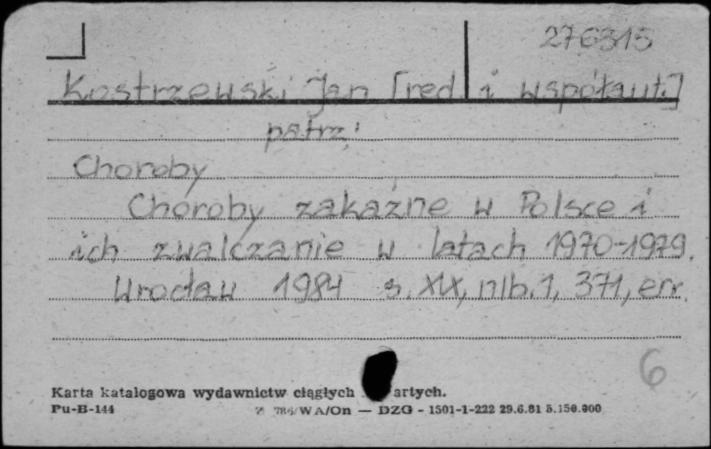 276315
Kostrzewski Jan [red i współaut.]
patrz:
Choroby
Choroby zakaźne w Polsce i
ich zwalczanie w latach 1970-1979.
Wrocław 1984 s. XIX, nlb. 1, 371, err.
6
Karta katalogowa wydawnictw ciągłych artych.
Pu-B-144 WA/On — DZG - 1501-1-222 29.6.81 5.150.000